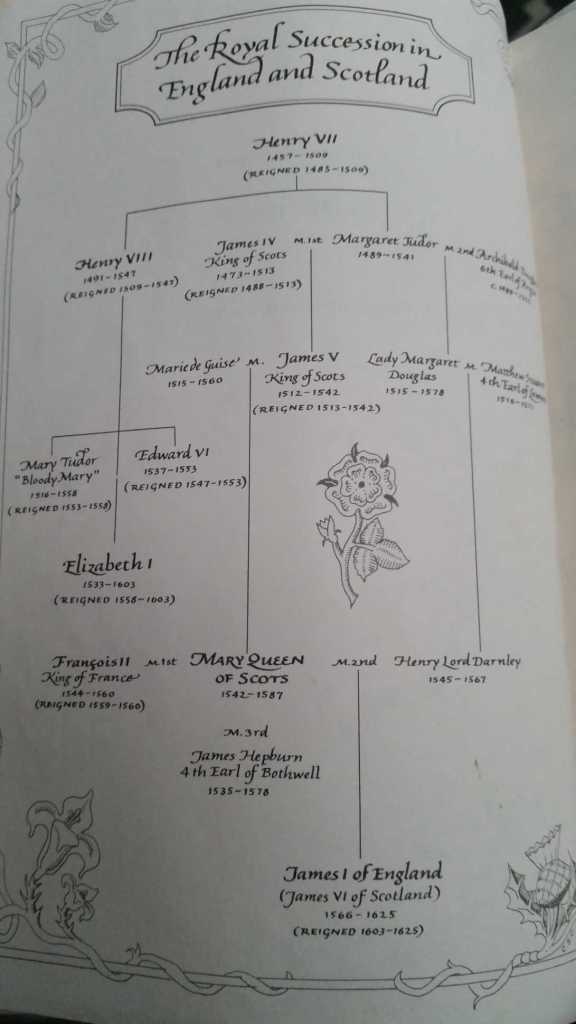 The Royal Succession in
England and Scotland
Henry VII
1457 – 1509
(REIGNED 1485–1509)
Henry VIII
1491–1547
(REIGNED 1509–1547)
James IV
King of Scots
1473–1513
(REIGNED 1488–1513)
M. 1st
Margaret Tudor
1489–1541
M. 2nd Archibald
6th Earl of
Marie de Guise
1515 – 1560
M.
James V
King of Scots
1512–1542
(REIGNED 1513–1542)
Lady Margaret
Douglas
1515 – 1578
M. Matthew
4th Earl of
Mary Tudor
"Bloody Mary"
1516–1558
(REIGNED 1553–1558)
Edward VI
1537–1553
(REIGNED 1547–1553)
Elizabeth I
1533–1603
(REIGNED 1558–1603)
François II
King of France
1544–1560
(REIGNED 1559–1560)
M. 1st
MARY QUEEN
OF SCOTS
1542–1587
M. 2nd
Henry Lord Darnley
1545–1567
M. 3rd
James Hepburn
4th Earl of Bothwell
1535–1578
James I of England
(James VI of Scotland)
1566–1625
(REIGNED 1603–1625)